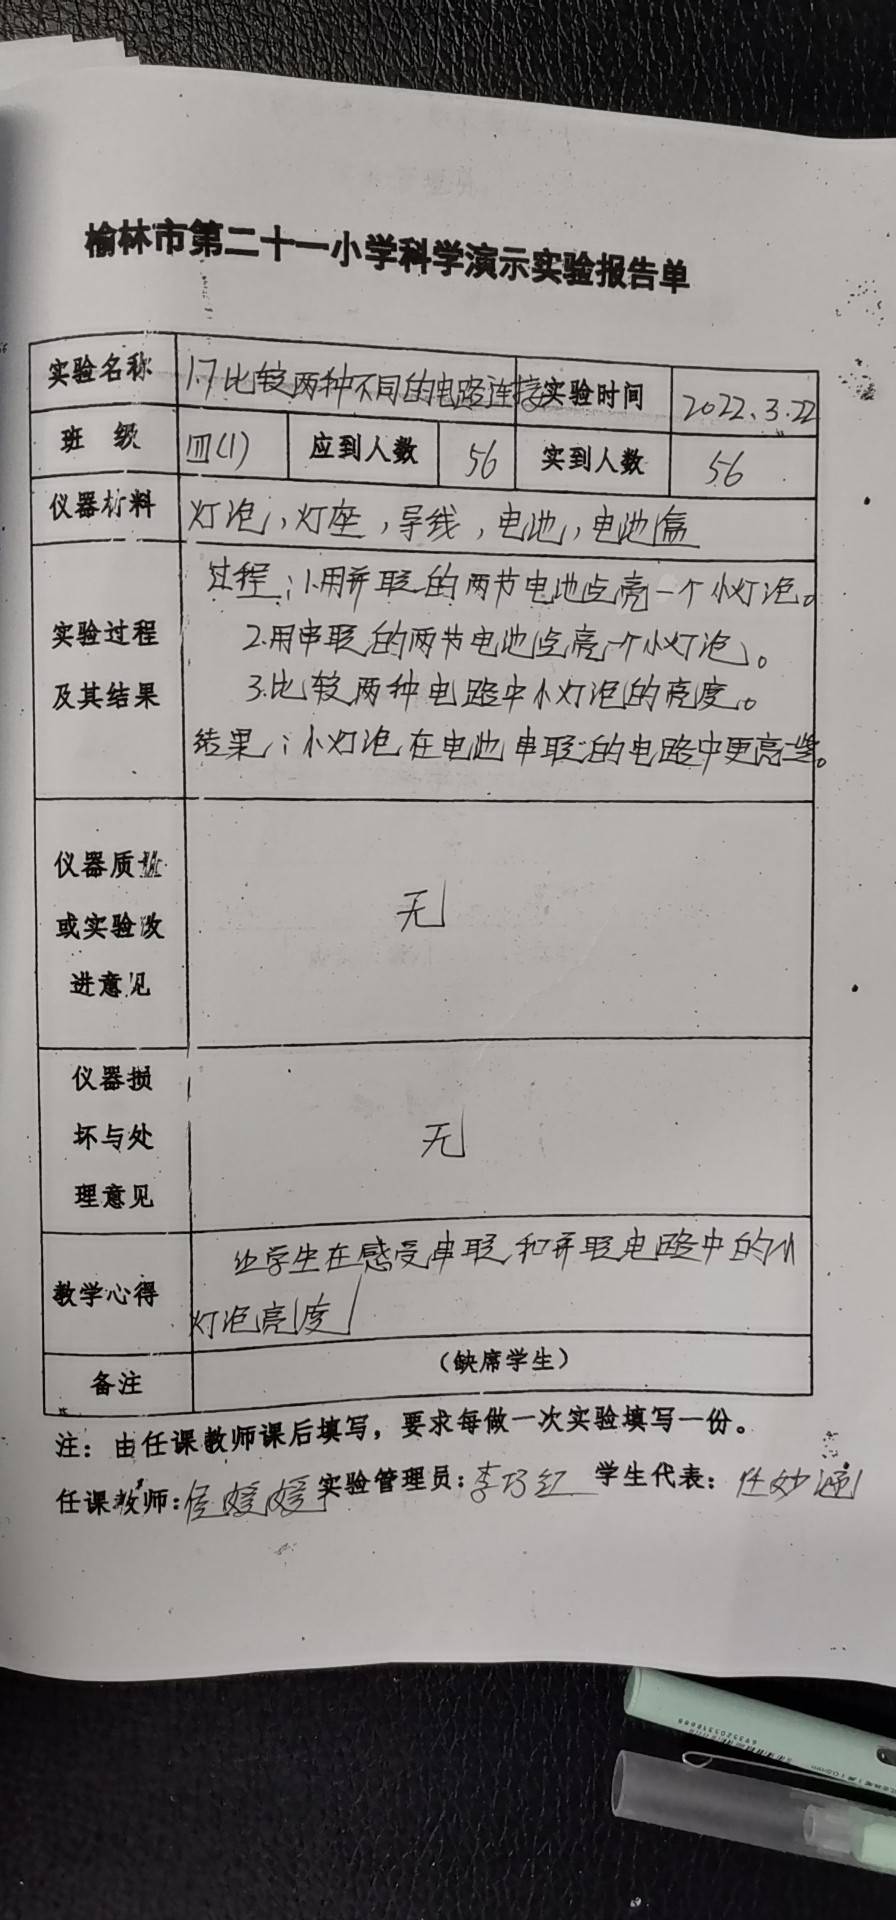 榆林市第二十一小学科学演示实验报告单
实验名称 1.7比较两种不同的电路连接 实验时间 2022.3.22
班 级 四(1) 应到人数 56 实到人数 56
仪器材料 灯泡,灯座,导线,电池,电池盒
过程:1.用并联的两节电池点亮一个小灯泡。
实验过程 2.用串联的两节电池点亮一个小灯泡。
及其结果 3.比较两种电路中小灯泡的亮度。
结果:小灯泡在电池串联的电路中更亮些。
仪器质量
或实验改 无
进意见
仪器损
坏与处 无
理意见
教学心得 让学生在感受串联和并联电路中的小
灯泡亮度
备注 (缺席学生)
注:由任课教师课后填写,要求每做一次实验填写一份。
任课教师:侯媛媛 实验管理员:李巧红 学生代表:任妙